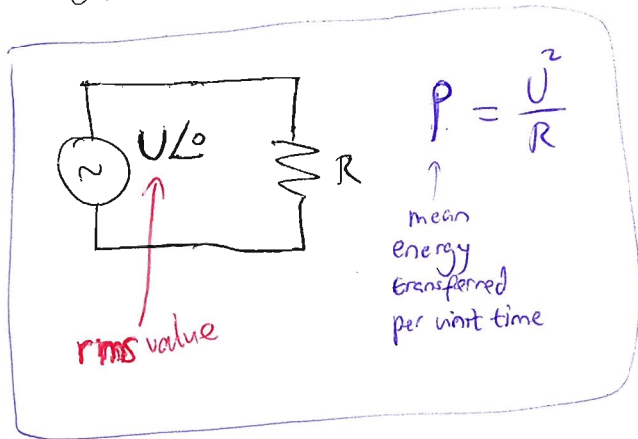 U∠0
R
rms value
P = U²/R
mean
energy
transferred
per unit time